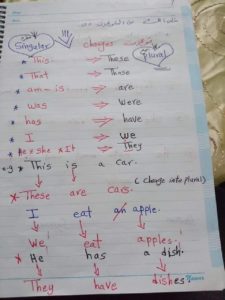 Singular changes Plural
* This → These
* That → Those
* am - is → are
* was → were
* has → have
* I → we
* He * she * It → They
e.g * This is a car.
( change into plural)
* These are cars.
I eat an apple.
We eat apples.
* He has a dish.
They have dishes.